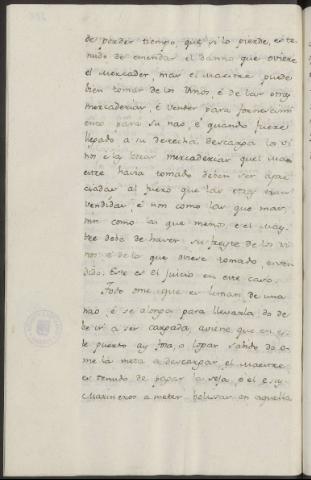 de perder tiempo, que si lo pierde, es te
nudo de emendar el danno que oviere
el Mercader, mas el Maestre puede
bien tomar de los vinos, é de las otras
mercaderias é vender para
para su nao, é quando fuere
llegado a su derecha descarga los vi
nos é las otras mercaderias quel Maes
tre havia tomado deben ser apre
ciadas al precio que las otras seran
vendidas, é non como las que mas,
nin como las que menos, é el Maes
tre debe de haver su freyte de los vi
nos é de lo que oviese tomado,
dido. Este es el juicio en este caso.
Todo ome, que es de una
nao, é se aloga para llevarla do de
be ir a ser cargada, aviene que en es
te puerto ay foga, o logar do o
me la meta a descargar, el Maestre
es tenudo de pagar la é el é sus
Marineros a meter en aquella